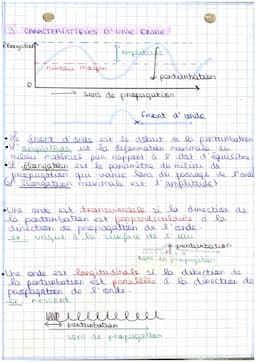 3 CARACTÉRISTIQUES D'UNE ONDE!
Elongation
amplitude
niveau moyen
perturbation
0
sens de propagation
front d'onde
• Le front d'onde est le début de la perturbation
• L'amplitude est la déformation maximale du
milieu matériel par rapport à l'état d'équilibre
• L'élongation est le paramètre du milieu de
propagation qui varie lors du passage de l'onde
(élongation maximale est l'amplitude)
• Une onde est transversale si la direction de
la perturbation est perpendiculaire à la
direction de propagation de l'onde.
ex: vague à la surface de l'eau
perturbation
sens de propagation
• Une onde est longitudinale si la direction de
la perturbation est parallèle à la direction de
propagation de l'onde.
ex: ressort
perturbation
sens de propagation